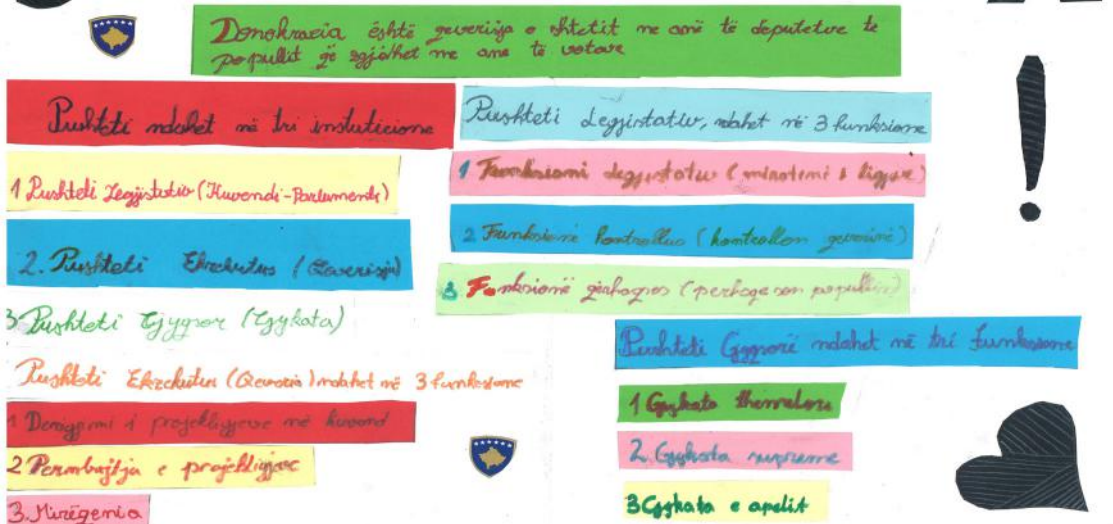 Demokracia është qeverisja e shtetit me anë të deputetve te
popullit që zgjidhet me ane të votave
Pushteti ndahet në tri instuticione
1 Pushteti Legjistativ (Kuvendi-Parlamenti)
2. Pushteti Ekzekutus (Qeverisja)
3 Pushteti Gjyqsor (Gjykata)
Pushteti Ekzekutiv (Qeveria) ndahet në 3 funksione
1 Dergjimi i projektligjeve në kuvend
2 Permbajtja e projektligjeve
3. Mirëqenia
Pushteti Legjistativ, ndahet në 3 funksione
1 Funksioni legjistativ ( i ligjeve)
2 Funksioni kontrollus (kontrollon qeverinë)
3 Funksioni (perfaqeson popullin)
Pushteti Gjyqsori ndahet në tri funksione
1 Gjykata themelore
2. Gjykata supreme
3 Gjykata e apelit